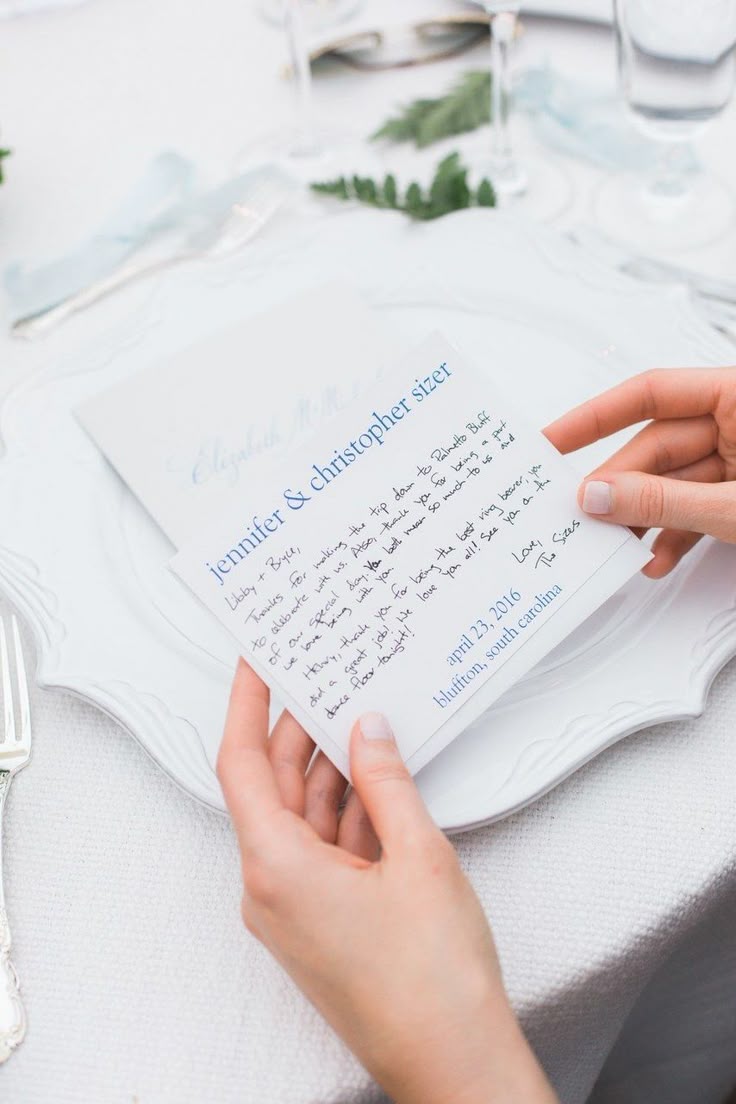 Elizabeth M
jennifer & christopher sizer
Libby + Bryce,
Thanks for making the trip down to Palmetto Bluff
to celebrate with us. Also, thank you for being a part
of our special day. You both mean so much to us and
we love being with you.
Henry, thank you for being the best ring bearer, you
did a great job! We love you all! See you on the
dance floor tonight!
Love,
The Sizers
april 23, 2016
bluffton, south carolina